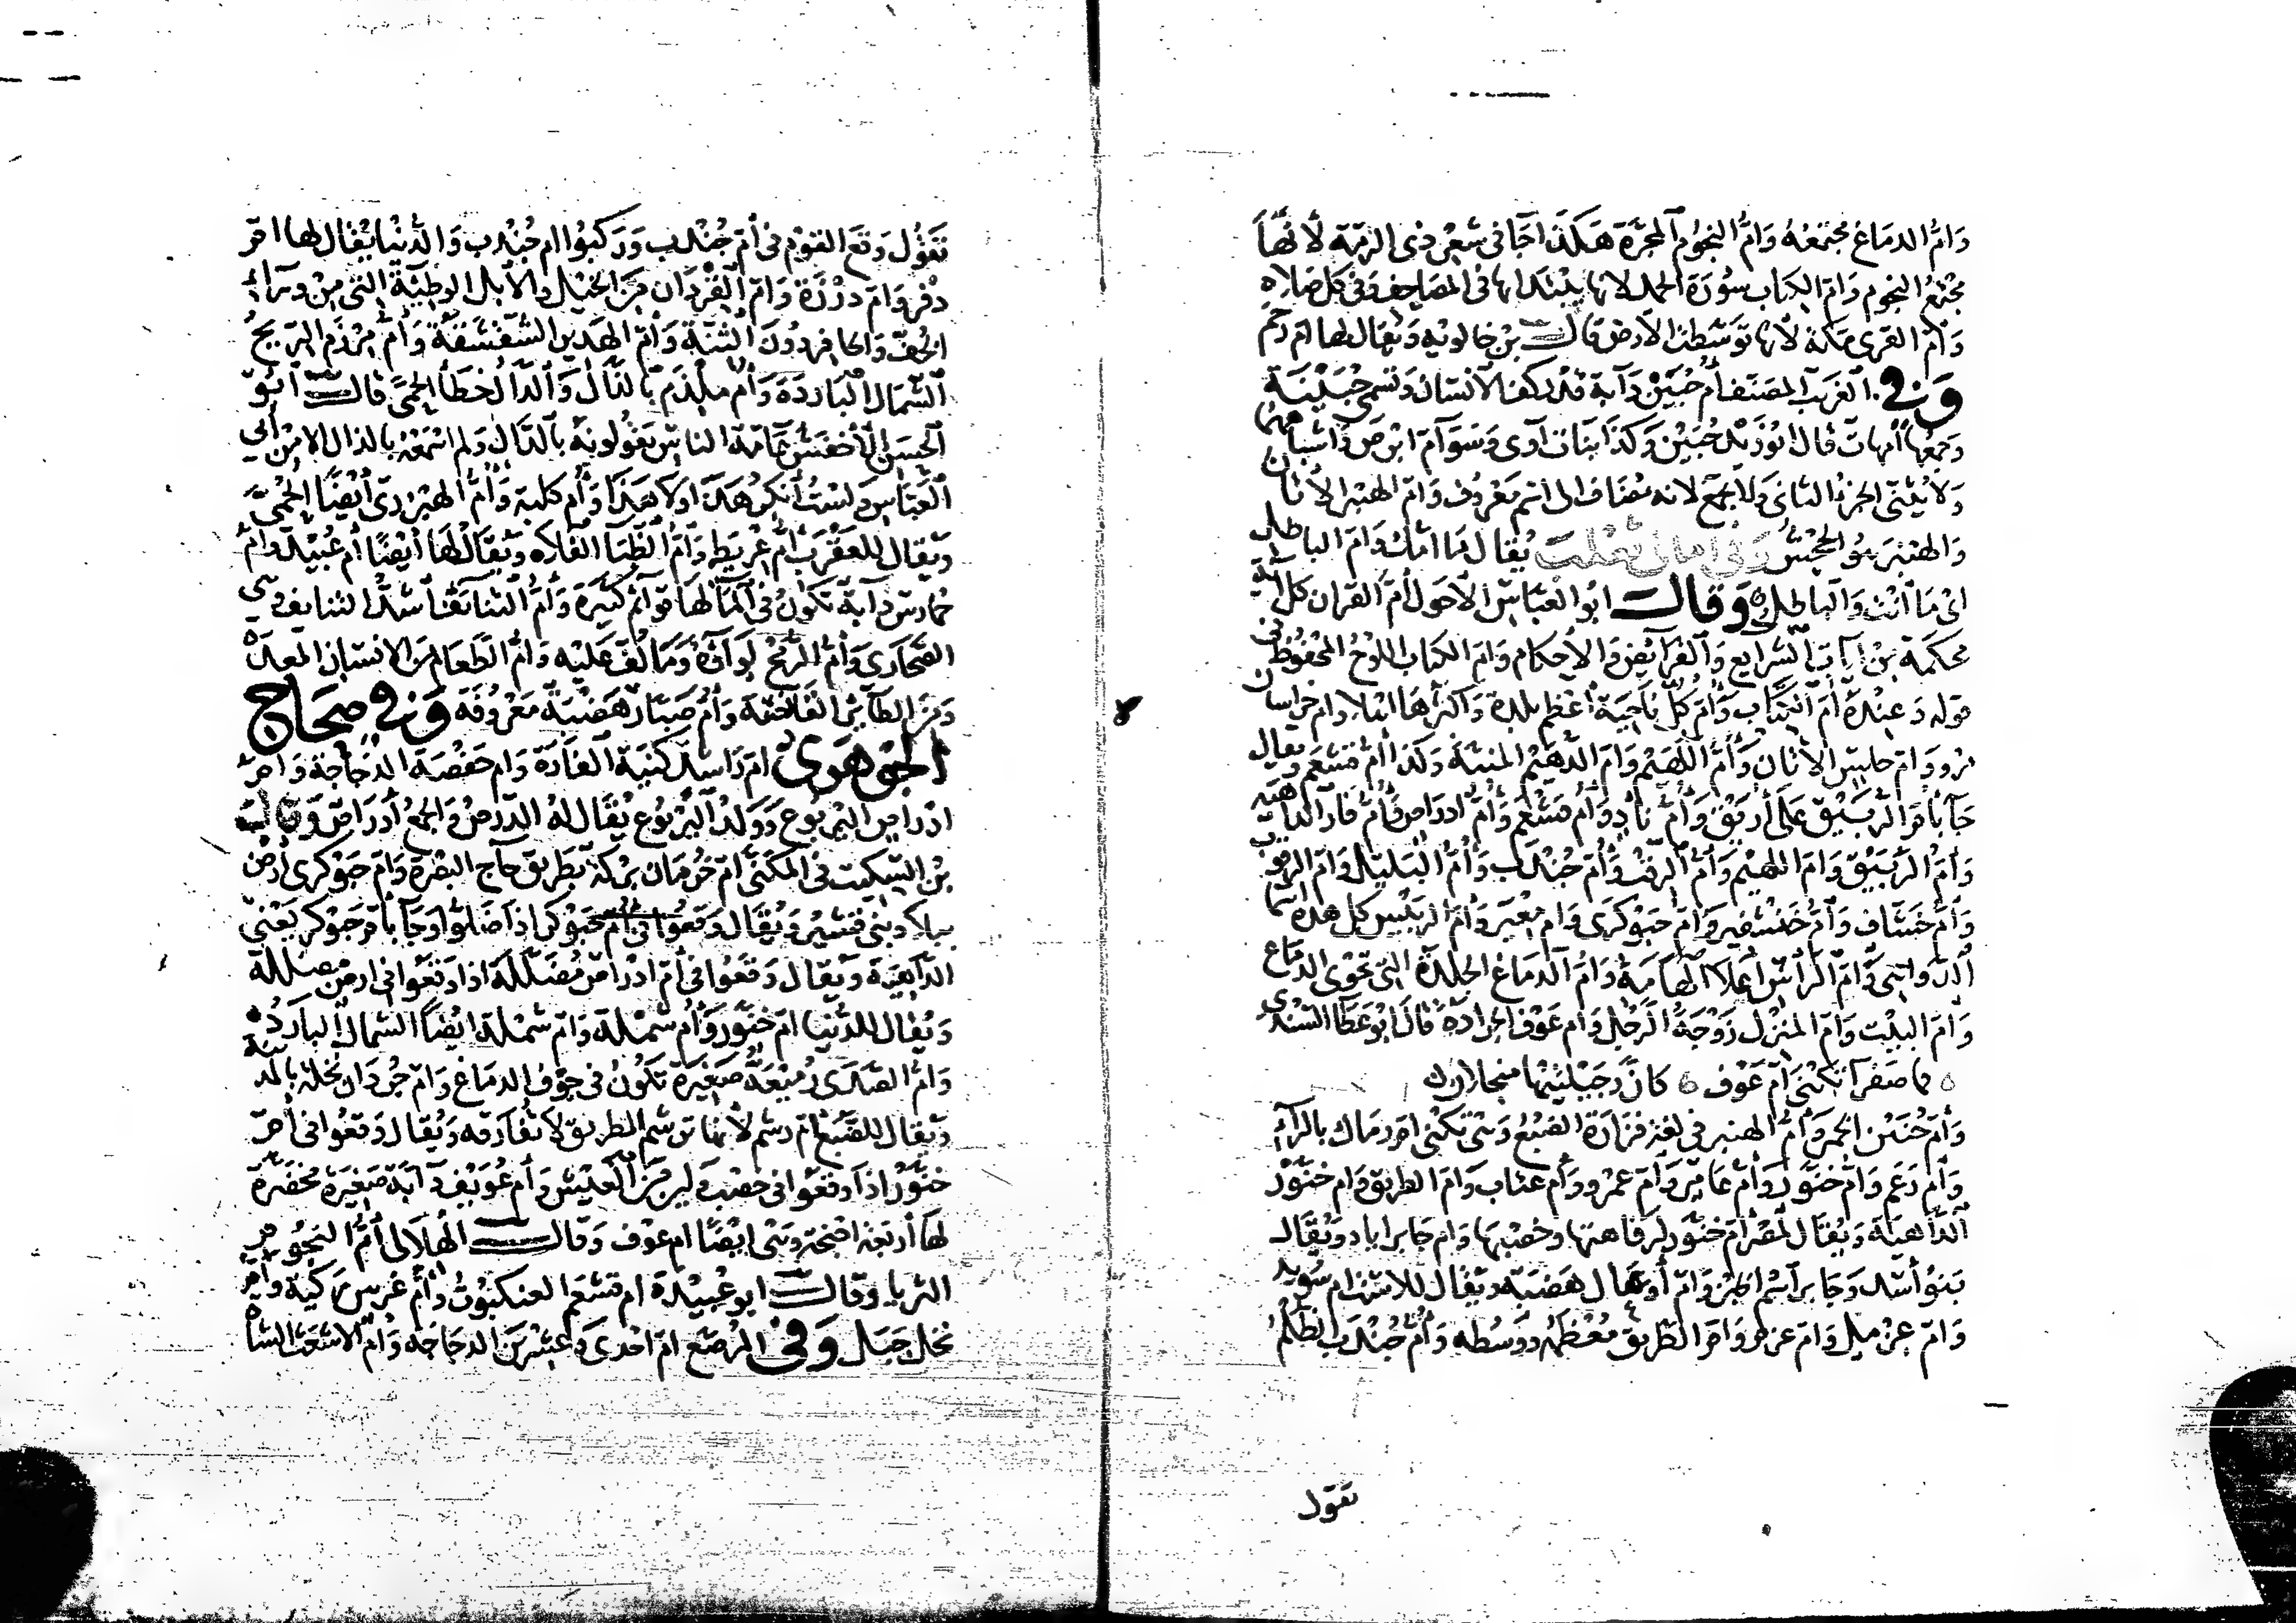 وَامُّ الدمَاغ مجتمَعُهُ وَامُّ النجوُم المجرَّة هَكذَا جَا في شعْر ذي الرمّة لأنّهَا
مجْتَمَعُ النجوم وَامّ الكِتاب سوُرَة الحمد لانها يبْتدَا بها في المصَاحِف وَفي كل صَلاه
وَامّ القرى مَكة لأنها توسَّطت الأرض قالـــ بن خالويه وَيُقال لها ام رحم
وَفي الغريب المصَنف أمّ حُبَيْن دَآبة قدْر كف الأنسَان وَتسمى حُبَيْنَة
وَجمعها أمهات قال ابُوزَيْد حُبَيْن وَكذَا بَنَات آوى وَسَوَآمّ ابْرصَ وَاشباههما
وَلا يُثنّى الجزء الثاني وَلا يجمَع لانه مضَاف الى اسم مَعْروُف وَامّ الهنبر الأتان
وَالهنْبَر هوُ الجحْشُ وَفي امالي ثعْلبَ يُقال مَا امّك وَامّ البَاطل
ايْ مَا أنت وَالباطل وَقالـــ ابُو العبّاس الأحَول أمّ القران كل آية
محكمَة مِنْ آيَات الشرايع وَالفرَآيض وَالأحكام وَامّ الكتاب اللوْحُ المحفوُظ في
قوله وَعِنْدَهُ أمّ الكتاب وَأمّ كلّ نَاحِيَة أعْظم بلدة وَأكثرها اهْلا وام خراسان
مَرو وَامّ حلسٍ الأتان وَأمُّ اللّهَيْم وَامّ الدّهَيْم المنيّة وَكذَا أمّ قشعَم وَيقال
جَآ بأمّ الرّبَيْق عَلى أرَيْق وَأمّ نآدٍ وَأمّ قشْعَم وَأمّ ادرَاص وَأمّ فأر الداهيَة
وَأمّ الرّبَيْق وَامّ اللهَيْم وَأمّ الرقْبِ وَأمّ جُنْدَب وَأمُّ البَليل وَامّ الرقوب
وَأمّ خشّاف وَأمّ خنْشفير وَامّ حَبَوْكرى وَام مِعْيَر وَأمّ الربَيْس كل هذه اسما
الدّوَاهي وَامّ الرَأس أعْلا الهَامَة وَامُّ الدمَاغ الجلدَة التي تحوْى الدمَاغ
وَامّ البيْت وَامّ المنزل زَوْجَةُ الرجُل وَام عَوْف الجرَادة قالَ ابُو عَطا السّندي
فما صَفرآ تكْنى أمّ عَوْف كانّ رُجَيْلتَيْها منجَلان
وَأمّ حُنَيْن الخمر وَأمّ الهنبر في لغة فزَارَة الضبُعُ وَهْي تكْنى امّ رمَال بالرآء
وَأم رَعْم وَامّ خنّوَر وَامّ عَامِر وَأمّ عمْرو وَأم عتاب وَامّ الطريق وَام خنّوْر
الدّاهيَة وَيُقال لمصْر أم خنّوَر لرَفاهتها وخصْبِهَا وَام جَابر اياد وَيُقال
بَنوُ أسَد وَجَابر اسْم الخبز وَامّ أوعَال هَضبَة وَيُقال للاسْت ام سُوَيد
وَامّ عِزْميل وَامّ عزمر وَامّ الطريق مُعْظمُه وَوَسْطه وَأمُّ جُنْدَب الظلم
تَقوُل
تقوُل وَقعَ القوْم في أمّ جُنْدب وَرَكبُوا ام جُنْدب وَالدّنْيا يُقال لها امّ
دفر وَامّ درْزَة وَامّ القرْدَان مِنَ الخيْل وَالأبل الوطيَّة التي مِنْ وَرآء
الخُفّ وَالحافِر دوُنَ الثنّة وَأمّ الهَدِير الشّقْشقة وَأمّ مِرْزَم الريحُ
الشّمال البَاردَة وَأمّ مِلْدَم بالدّال وَالذّال خطأ الحمَّى قالـــ ابُو
الحسَن الأخفش عَآمّة الناس يَقولوُنه بالدّال وَلم اسْمَعْهُ بالذال الا من أبي
العَبَّاس وَلسْت أنكر هَذا وَلا هَذَا وَأم كلبَة وَأمُّ الهبْرِزِيّ أيْضًا الحُمّى
وَيقال للعَقْرب أمّ عِرْيَط وَأمّ الظّبَا الفلاه وَيُقال لهَا أيْضًا أم عُبَيْد وَامّ
حُمارس دآبة تكوُن في المآ لهَا قوَآئم كثيرَة وَأمّ التنايَف أشدُّ التنايف وهي
الصَّحَاري وَأمّ الرمْح لوَآؤُهُ وَمَا لُفَّ عَليْه وَامّ الطعَام مِنَ الانسَان المعدَة
وَمِنَ الطآئر القانصَة وَأمّ صَبّار هَضْبَة مَعْروُفة وَفي صِحَاح
الجوْهَريّ امّ رَاشد كنيَة الفَأرَة وَام حَفْصَة الدجَاجة وَامّ
ادْرَاص اليَرْبوُع وَوَلدُ اليَرْبوُع يُقال لهُ الدّرصُ وَالجمعُ أدرَاصٌ وَقالـــ
بن السّكيت في المكنّى امّ خُرمَان بركة بطَريق حَاج البصْرَة وَامّ حَبَوْكرى أرض
ببلاد بَني قشَيْر وَيُقال وَقعَوا في أم حَبَوْكرا اذا ضَلوا وَجَآ بأمّ حَبَوْكر يَعْني
الدّاهِيَة وَيقال وَقعُوا في أمّ ادْرَاص مُضَلّلة اذا وَقعُوا في ارض مضللة
وَيُقال للدّنيا امّ خنّور وَأمّ شمْلة وَامّ شمْلة ايْضًا الشمال البارَدَة
وَامّ الصّدَى رُمَيْعَة صَغيرَة تكوُن في جوْف الدمَاغ وَامّ جُرْذان نخلة بالمدينة
وَيقال للضبع امّ رسم لأنها ترسُم الطريق لا تفارقه وَيُقال وَقعوُا في أمّ
خنّوْر اذا وَقعَوا في خصْب وَلين مِنَ العَيْش وَأمّ عُوَيْف دآبة صَغيرة مخضرّة
لهَا أرْبَعَة اجْنحَة وَهْي ايْضًا ام عوْف وَقالـــ الهلالي أمّ النجوُم
الثريا وَقالـــ ابو عُبَيْدة ام قشعَم العنكبوُت وَأمّ غِرس رَكيّة وَام
نخل جَبَل وَفي المرصّع امّ احْدى وَعِشْرينَ الدجَاجَة وَأمّ الاشعَث الشاه